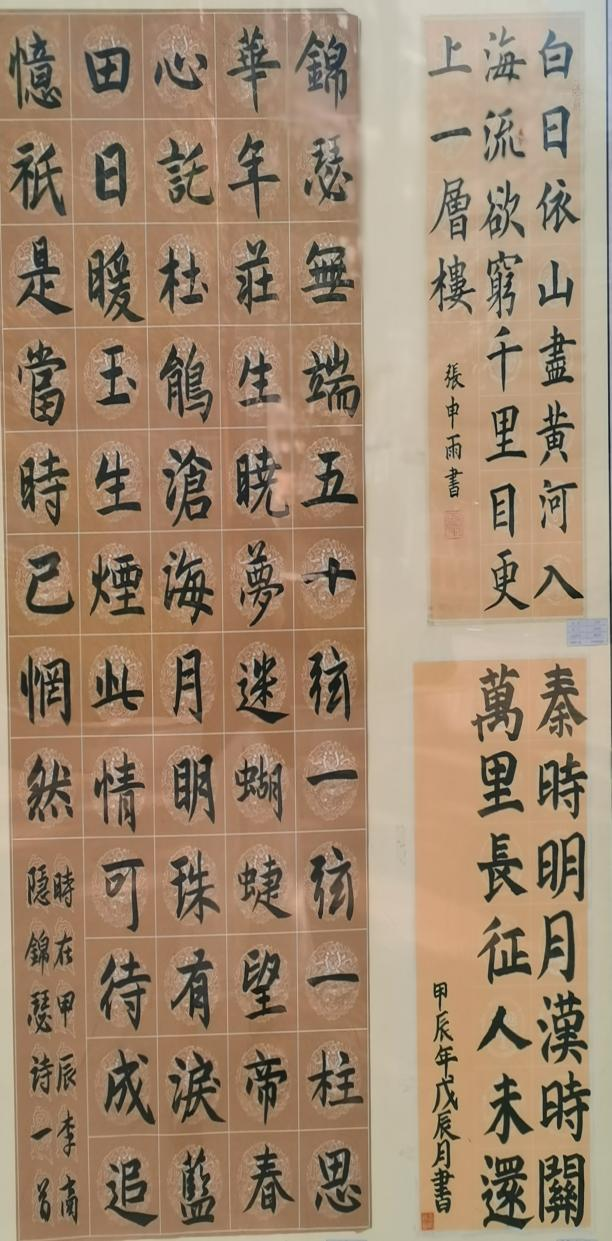 白日依山盡黃河入
海流欲窮千里目更
上一層樓
張申雨書
秦時明月漢時關
萬里長征人未還
甲辰年戊辰月書
錦瑟無端五十弦一弦一柱思
華年莊生曉夢迷蝴蜨望帝春
心託杜鵑滄海月明珠有淚藍
田日暖玉生煙此情可待成追
憶祇是當時已惘然
時在甲辰李商
隱錦瑟诗一首